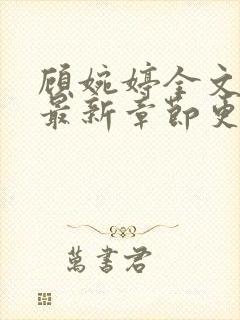 顾婉婷全文
最新章节更
萬書君